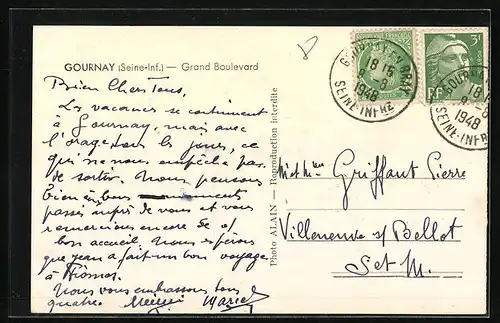 GOURNAY (Seine-Inf.) — Grand Boulevard
Bien Chers Tous,
Les vacances se continuent
à Gournay, mais avec
l'orage tous les jours, ce
qui ne nous empêche pas
de sortir. Nous pensons
bien aux bons moments
passés auprès de vous et vous
remercions encore de
bon accueil. Nous espérons
que Jean a fait un bon voyage
à
Nous vous embrassons tous
quatre. Mimi Marcel
Photo ALAIN — Reproduction interdite
GOURNAY EN BRAY
18 15
8-8
1948
SEINE-INFRE
3F
RF
GOURNAY
18
8-8
1948
SEINE-INFRE
M. et Mme Griffaut Pierre
Villeneuve s/ Bellot
S et M.